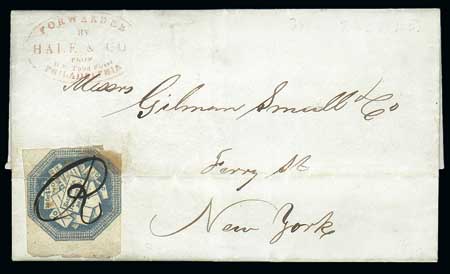 FORWARDED
BY
HALE & CO
FROM
PHILADELPHIA
Messrs Gilman Small & Co
Ferry St
New York